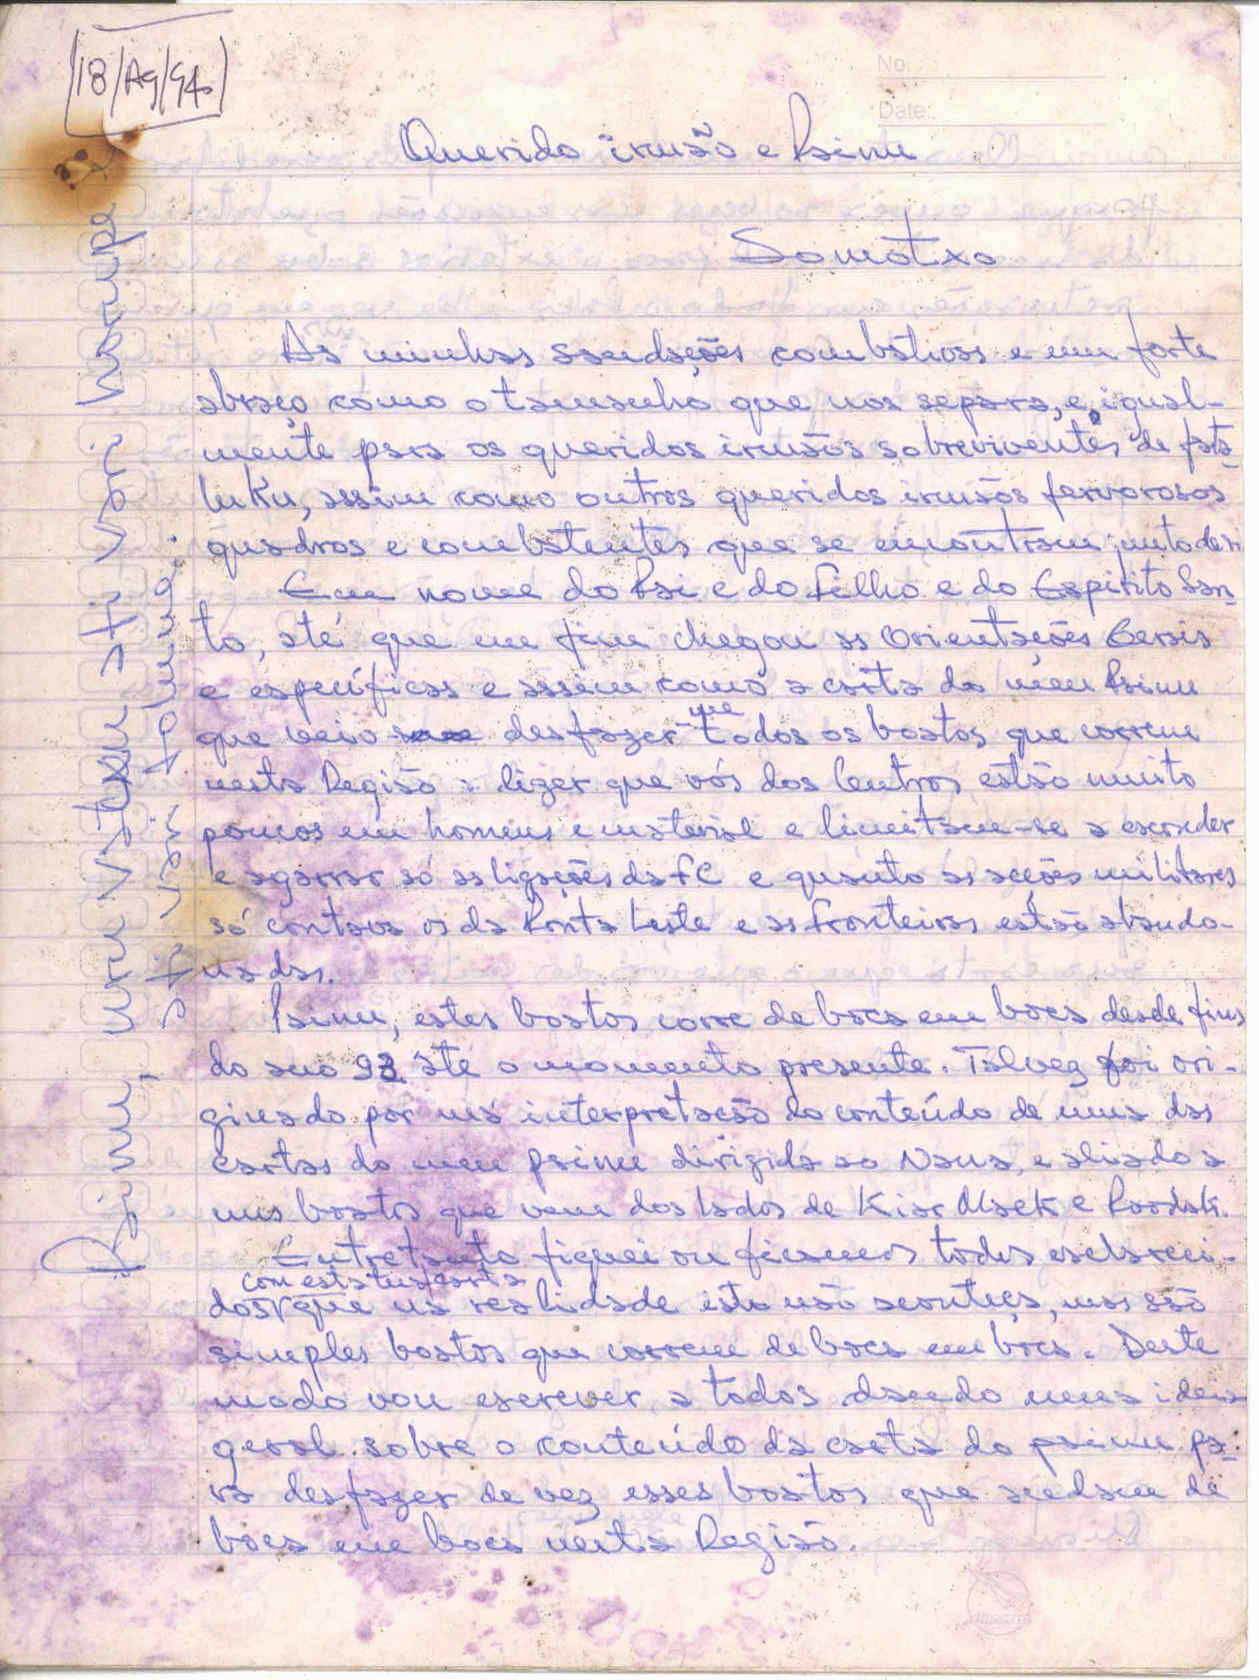 18/Ag/94.
No.
Date:
Querido irmão e Painu
Somotxo
As minhas saudações combativas e um forte
abraço como o tamanho que nos separa, e, igual-
mente para os queridos irmãos sobreviventes de fata
luku, assim como outros queridos irmãos fervorosos
quadros e combatentes que se encontram junto de ti.
Em nome do Pai e do Filho e do Espírito San-
to, até que em fim chegou as Orientações Gerais
e específicas e assim como a carta do meu Painu
que veio desfazer-me todos os boatos que correm
nesta Região: dizer que vós dos Centros estão muito
poucos em homens e material e limitam-se a esconder
e agarrar só as ligações da FC e quanto às acções militares
só contava os da Ponta Leste e as fronteiras estão abando-
nadas.
Painu, estes boatos corre de boca em boca desde fins
do ano 93 até o momento presente. Talvez foi ori-
ginado por má interpretação do conteúdo de uma das
cartas do meu painu dirigida ao Nana, e aliado a
uns boatos que vem dos lados de
Entretanto fiquei ou ficamos todos esclareci-
com esta tua carta
dos que na realidade isto não aconteça, mas são
simples boatos que correm de boca em boca. Deste
modo vou escrever a todos dando uma ideia
geral sobre o conteúdo da carta do painu pa-
ra desfazer de vez esses boatos que andam de
boca em boca nesta Região.
Painu,